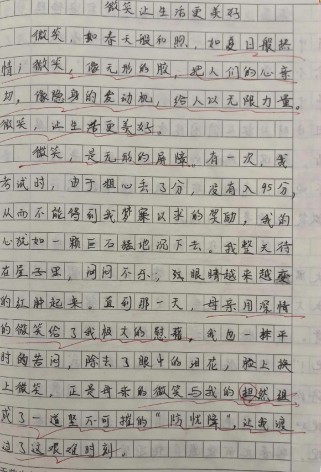 微笑让生活更美好
微笑，如春天般和煦，如夏日般热
情；微笑，像无形的胶，把人们的心亲
切，像隐身的发动机，给人以无限力量。
微笑，让生活更美好。
微笑，是无形的屏障。有一次，我
考试时，由于粗心丢了分，没有入95分，
从而不能得到我梦寐以求的奖励，我的
心犹如一颗巨石猛地沉下去。我整天待
在屋子里，闷闷不乐，双眼情越来越
的红肿起来。直到那一天，母亲用深情
的微笑给了我极大的慰藉，我也一抹平
时的苦闷，除去了眼中的泪花，脸上换
上微笑，正是母亲的微笑与我的坦然组
成了一道坚不可摧的“防忧障”，让我渡
过了这艰难时刻。